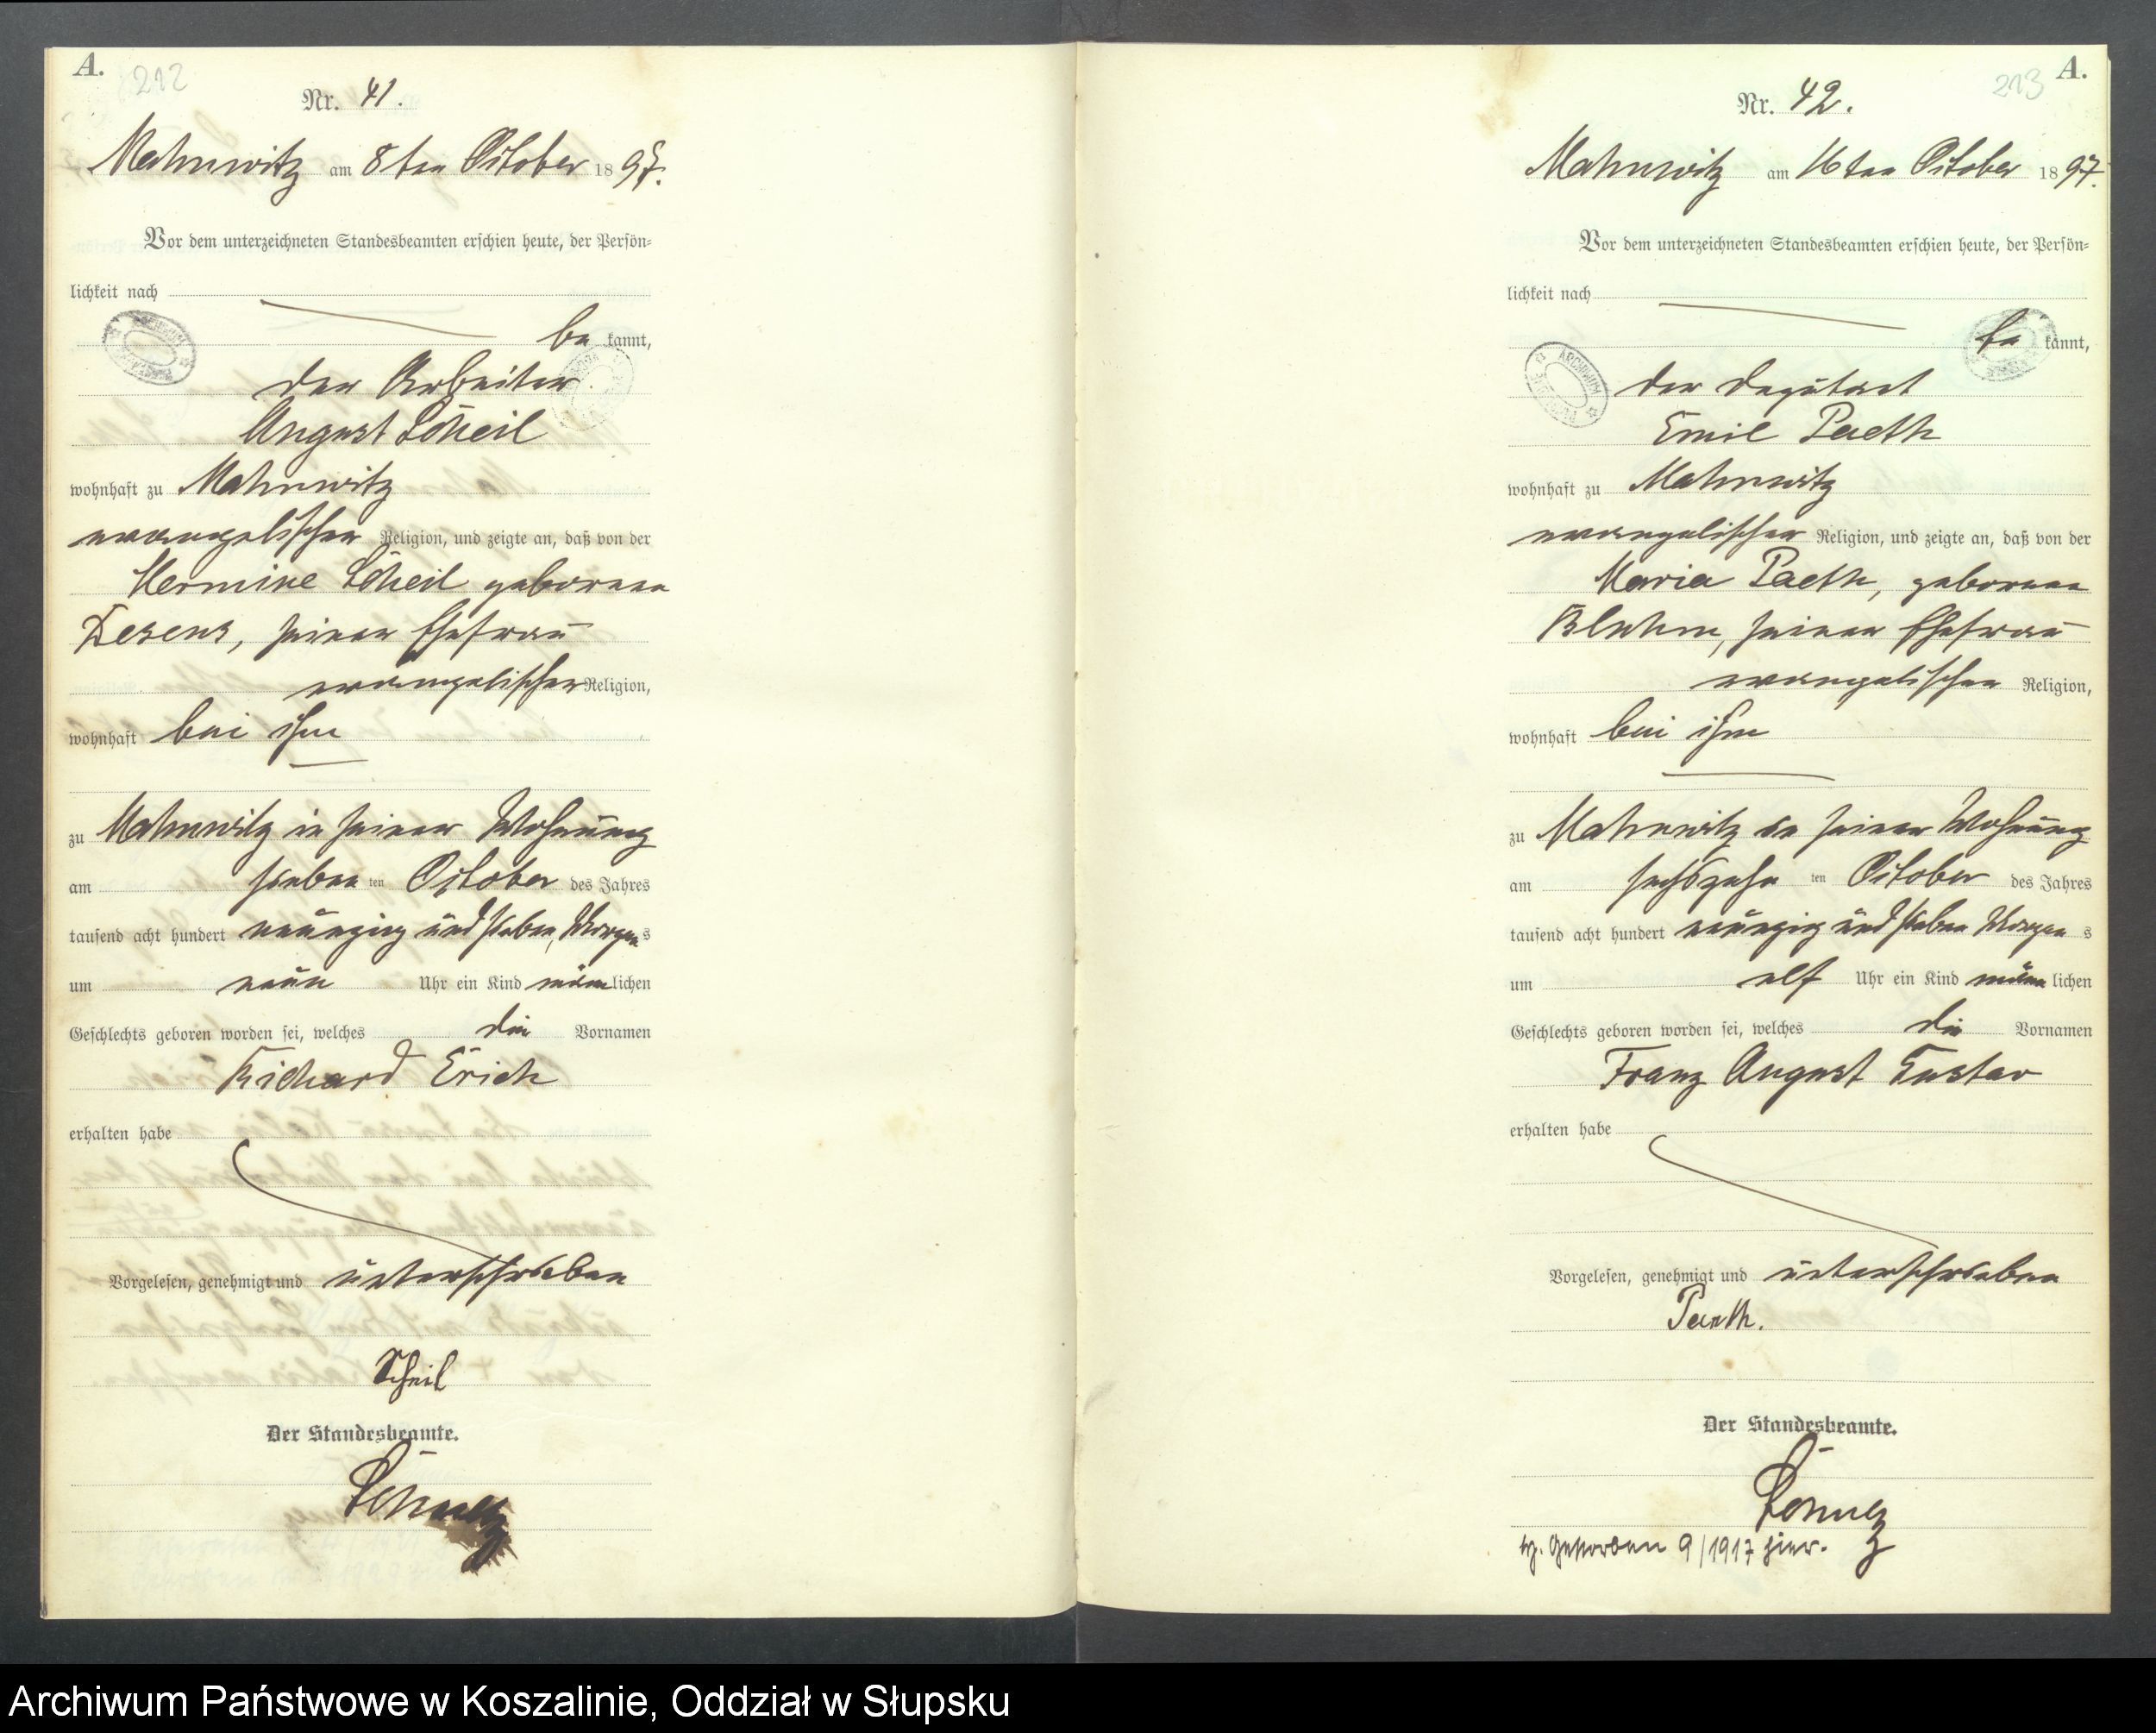 A.
212
Nr. 41.
Mahnwitz am 8ten October 1897.
Vor dem unterzeichneten Standesbeamten erschien heute, der Persön-
lichkeit nach
be kannt,
der Arbeiter
August Scheil
wohnhaft zu Mahnwitz
evangelischer Religion, und zeigte an, daß von der
Hermine Scheil geborenen
Dezens, seiner Ehefrau
evangelischer Religion,
wohnhaft bei ihm
zu Mahnwitz in seiner Wohnung
am sieben ten October des Jahres
tausend acht hundert neunzig und sieben, Morgens
um neun Uhr ein Kind männlichen
Geschlechts geboren worden sei, welches die Vornamen
Richard Erich
erhalten habe
Vorgelesen, genehmigt und unterschrieben
Scheil
Der Standesbeamte.
A.
213
Nr. 42.
Mahnwitz am 16ten October 1897.
Vor dem unterzeichneten Standesbeamten erschien heute, der Persön-
lichkeit nach
be kannt,
der Deputant
Emil Paeth
wohnhaft zu Mahnwitz
evangelischer Religion, und zeigte an, daß von der
Maria Paeth, geborenen
Bluhm, seiner Ehefrau
evangelischer Religion,
wohnhaft bei ihm
zu Mahnwitz in seiner Wohnung
am sechszehn ten October des Jahres
tausend acht hundert neunzig und sieben Morgen s
um elf Uhr ein Kind männ lichen
Geschlechts geboren worden sei, welches die Vornamen
Franz August Gustav
erhalten habe
Vorgelesen, genehmigt und unterschrieben
Paeth.
Der Standesbeamte.
Gestorben 9/1917 hier.
Archiwum Państwowe w Koszalinie, Oddział w Słupsku